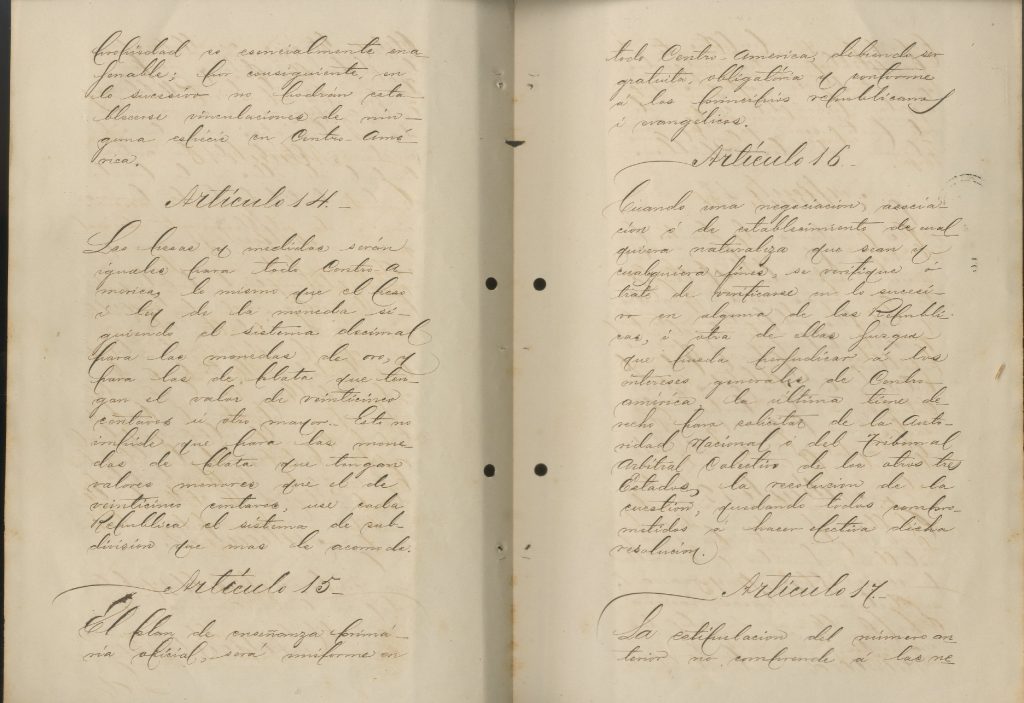 propiedad es esencialmente ena-
genable; por consiguiente, en
lo sucesivo no podran esta-
blecerse vinculaciones de nin-
guna especie en Centro-Amé-
rica.
Artículo 14.-
Las pesas y medidas serán
iguales para todo Centro-A-
merica, lo mismo que el peso
i ley de la moneda si-
guiendo el sistema decimal
para las monedas de oro, y
para las de plata que ten-
gan el valor de veinticinco
centavos ú otro mayor. Esto no
impide que para las mone-
das de plata que tengan
valores menores que el de
veinticinco centavos, use cada
República el sistema de sub-
division que mas le acomode.
Artículo 15-
El plan de enseñanza primá-
ria oficial, será uniforme en
todo Centro-America, debiendo ser
gratuita, obligatoria y conforme
a los principios republicanos
i evangélicos.
Artículo 16.-
Cuando una negociacion, asocia-
cion ó de establecimiento de cual
quiera naturaliza que sean y
cualquiera fines, se verifique ó
trate de verificarse en lo sucesi-
vo en alguna de las Repúbli-
cas, i otra de ellas juzgue
que pueda perjudicar á los
intereses generales de Centro-
américa la ultima tiene de-
recho para solicitar de la Auto-
ridad Nacional o del Tribunal
Arbitral Colectivo de los otros tres
Estados, la resolucion de la
cuestion, quedando todos compro-
metidos á hacer efectiva dicha
resolucion.
Artículo 17.-
La estipulacion del número an-
terior no comprende á las ne